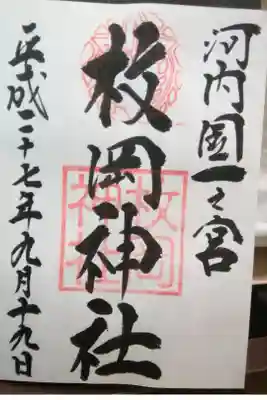 河内国一之宮
枚岡神社
平成二十七年九月十九日
枚岡神社